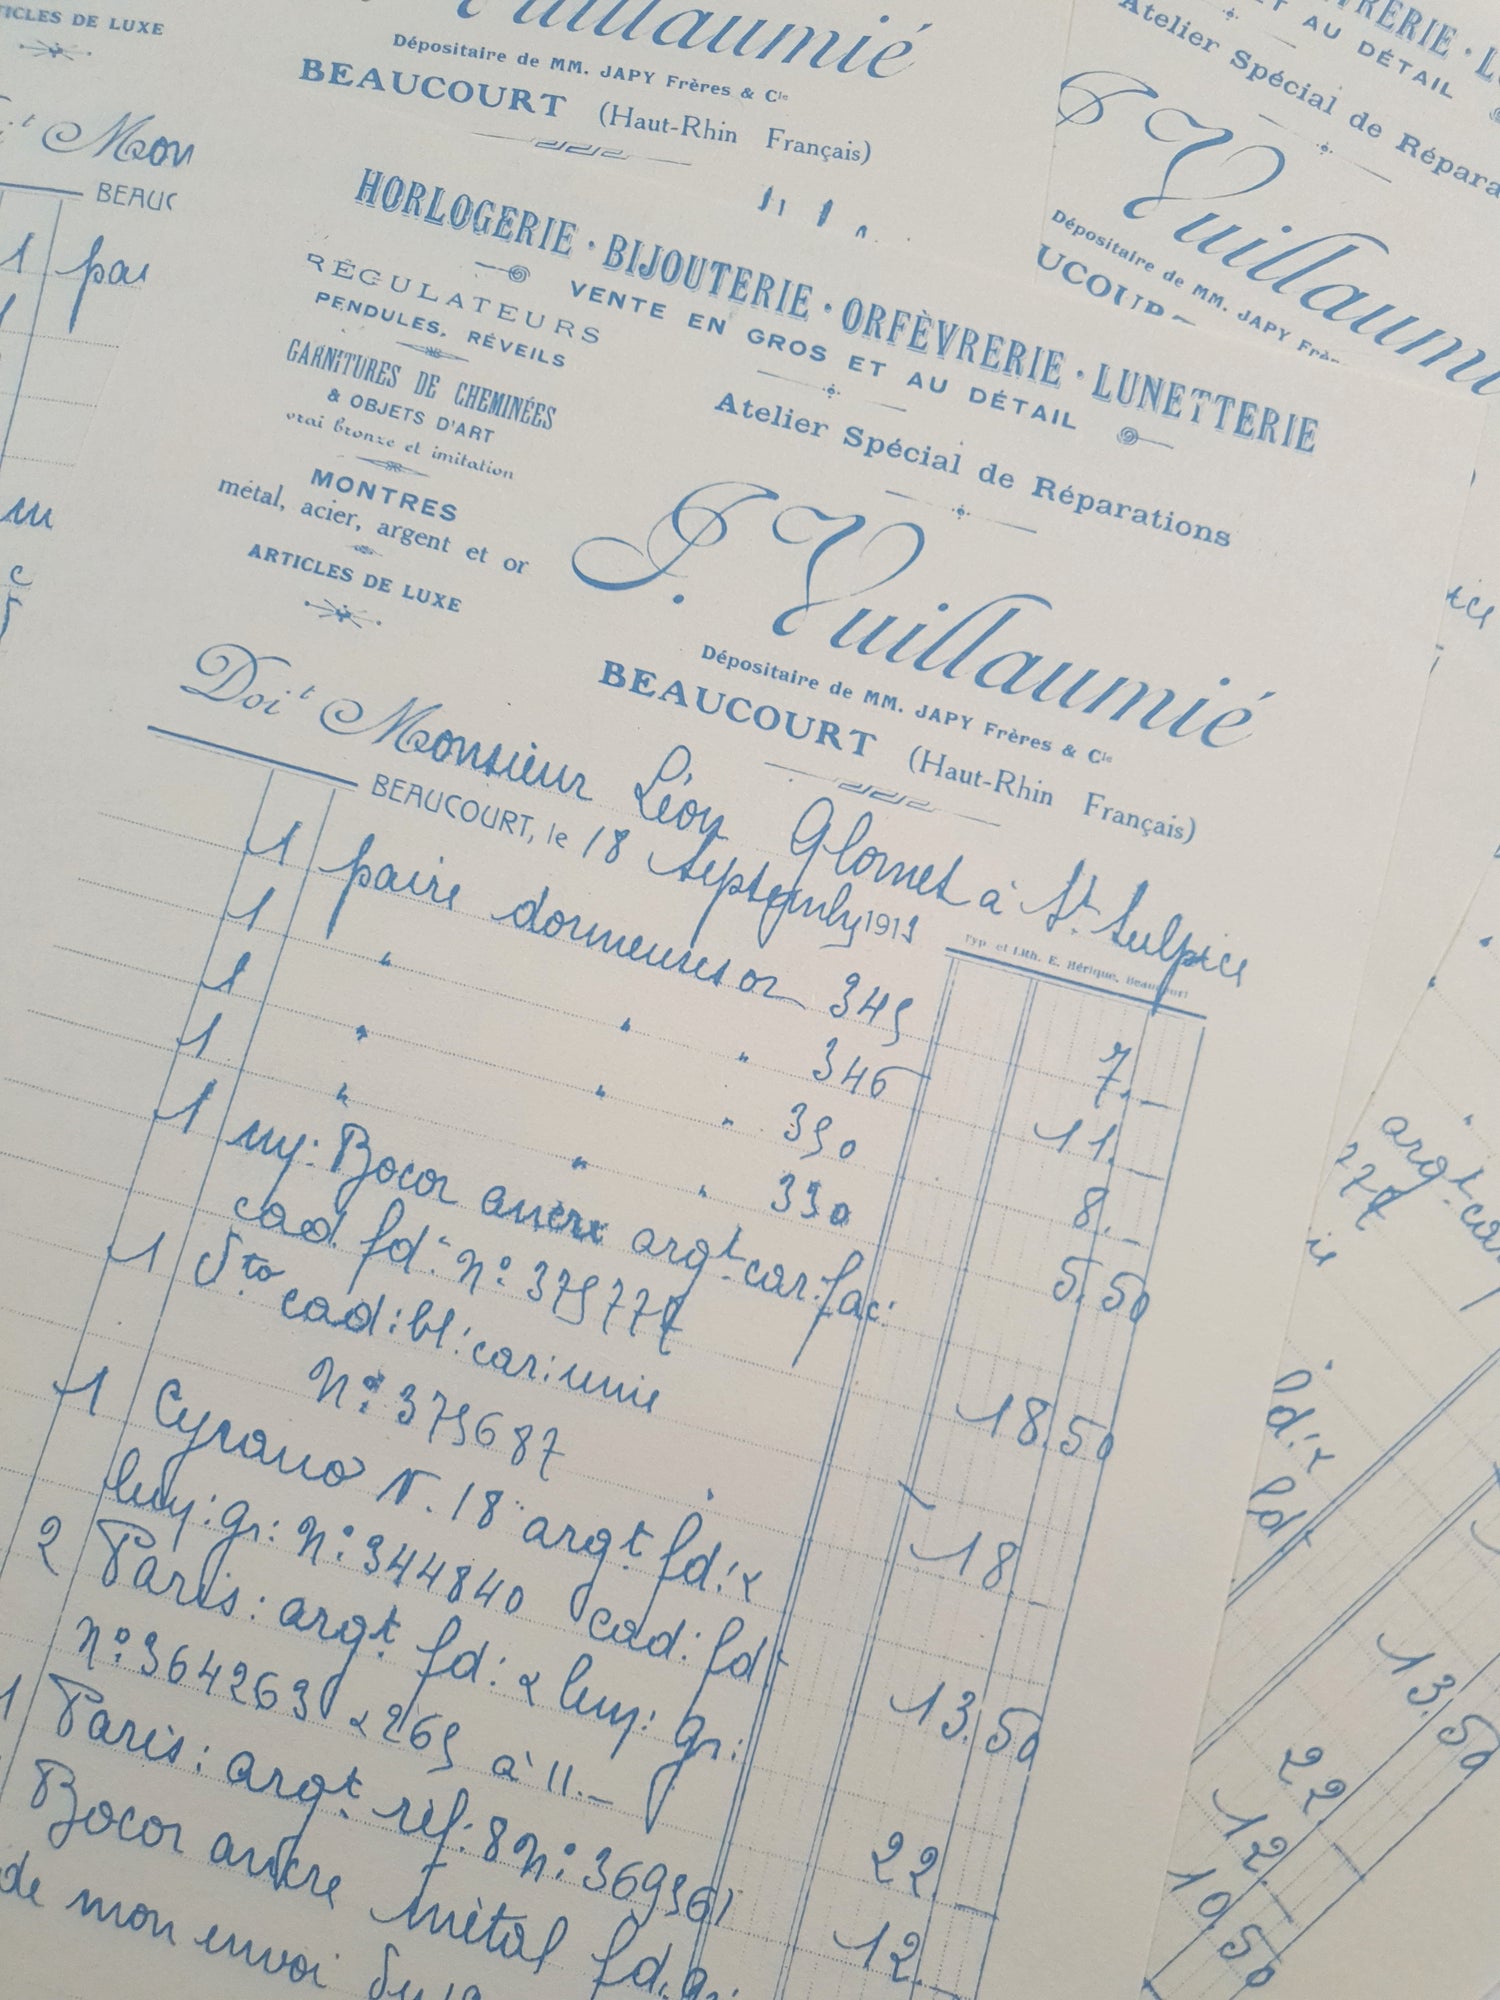 TICLES DE LUXE
Mon
BEAUC
1 pai
Vuillaumié
Dépositaire de MM. JAPY Frères & Cie
BEAUCOURT (Haut-Rhin Français)
ET AU DÉTAIL
Atelier Spécial de Répara
J. Vuillaumi
Dépositaire de MM. JAPY Frè
UCOUR
HORLOGERIE · BIJOUTERIE · ORFÈVRERIE · LUNETTERIE
VENTE EN GROS ET AU DÉTAIL
Atelier Spécial de Réparations
RÉGULATEURS
PENDULES, RÉVEILS
GARNITURES DE CHEMINÉES
& OBJETS D'ART
vrai bronze et imitation
MONTRES
métal, acier, argent et or
ARTICLES DE LUXE
J. Vuillaumié
Dépositaire de MM. JAPY Frères & Cie
BEAUCOURT (Haut-Rhin Français)
Doit Monsieur Léon Glornet à St. Sulpice
BEAUCOURT, le 18 Septembre 1913
Typ. et Lith. E. Hérique, Beaucourt
1 paire dormeuses or 345 7.—
1 " " " 346 11.—
1 " " " 350 8.—
1 " " " 330 5.50
1 my: Bocor ancre argt car: fac:
cad. fdt n° 375777 18.50
1 Sto cad: bl: car: unie
N° 375687 18.—
1 Cyrano N. 18 argt fd: &
luy: gr: N° 344840 cad: fdt 13.50
2 Paris: argt fd: & luy: gr:
N° 364263 & 265 à 11.— 22.—
1 Paris: argt réf: 8 N° 369561 12.—
Bocor ancre métal fd. g:
de mon envoi du
argt car
277
fd: &
fdt
13.50
22
12.
10.50